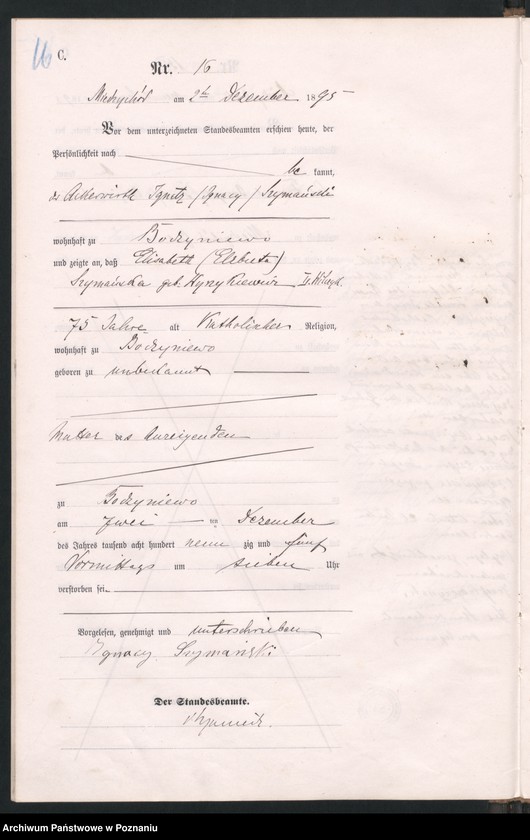 16 C.
Nr. 16
am 2ten Dezember 1895
Vor dem unterzeichneten Standesbeamten erschien heute, der
Persönlichkeit nach
be kannt,
der Ackerwirth Ignatz (Ignacy) Szymański
wohnhaft zu Bodzyniewo
und zeigte an, daß Elisabeth (Elżbieta)
Szymańska geb.
75 Jahre alt Katholischer Religion,
wohnhaft zu Bodzyniewo
geboren zu unbekannt
Mutter des Anzeigenden
zu Bodzyniewo
am zwei ten Dezember
des Jahres tausend acht hundert neun zig und fünf
Vormittags um sieben Uhr
verstorben sei.
Vorgelesen, genehmigt und unterschrieben
Ignacy Szymański
Der Standesbeamte.
Archiwum Państwowe w Poznaniu